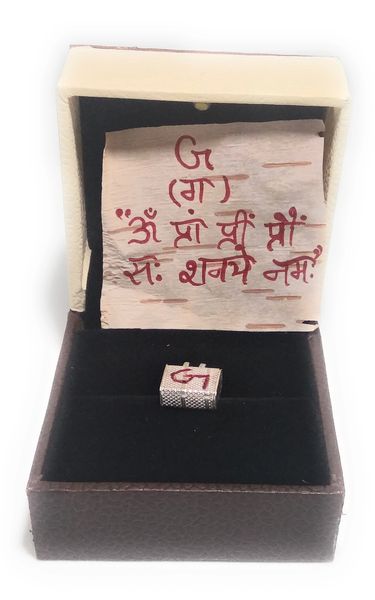 G
(ग)
"ॐ प्रां प्रीं प्रौं
सः शनये नमः"
G